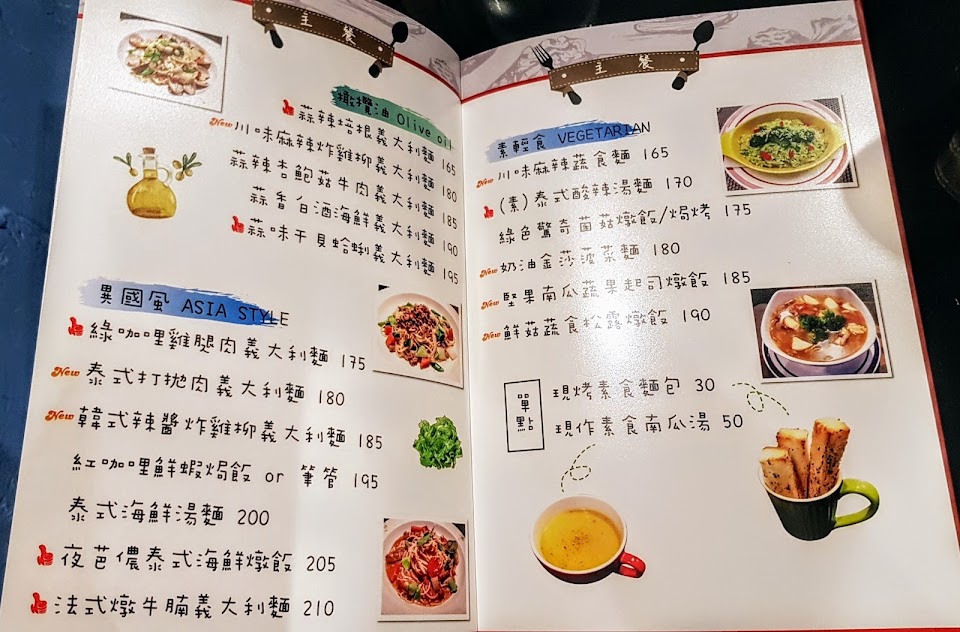 主餐
橄欖油 Olive oil
蒜辣培根義大利麵 165
New 川味麻辣炸雞柳義大利麵 180
蒜辣杏鮑菇牛肉義大利麵 185
蒜香白酒海鮮義大利麵 190
蒜味干貝蛤蜊義大利麵 195
異國風 ASIA STYLE
綠咖哩雞腿肉義大利麵 175
New 泰式打拋肉義大利麵 180
New 韓式辣醬炸雞柳義大利麵 185
紅咖哩鮮蝦焗飯 or 筆管 195
泰式海鮮湯麵 200
夜芭儂泰式海鮮燉飯 205
法式燉牛腩義大利麵 210
主餐
素輕食 VEGETARIAN
New 川味麻辣蔬食麵 165
(素)泰式酸辣湯麵 170
綠色驚奇菌菇燉飯/焗烤 175
New 奶油金莎菠菜麵 180
New 堅果南瓜蔬果起司燉飯 185
New 鮮菇蔬食松露燉飯 190
單點
現烤素食麵包 30
現作素食南瓜湯 50